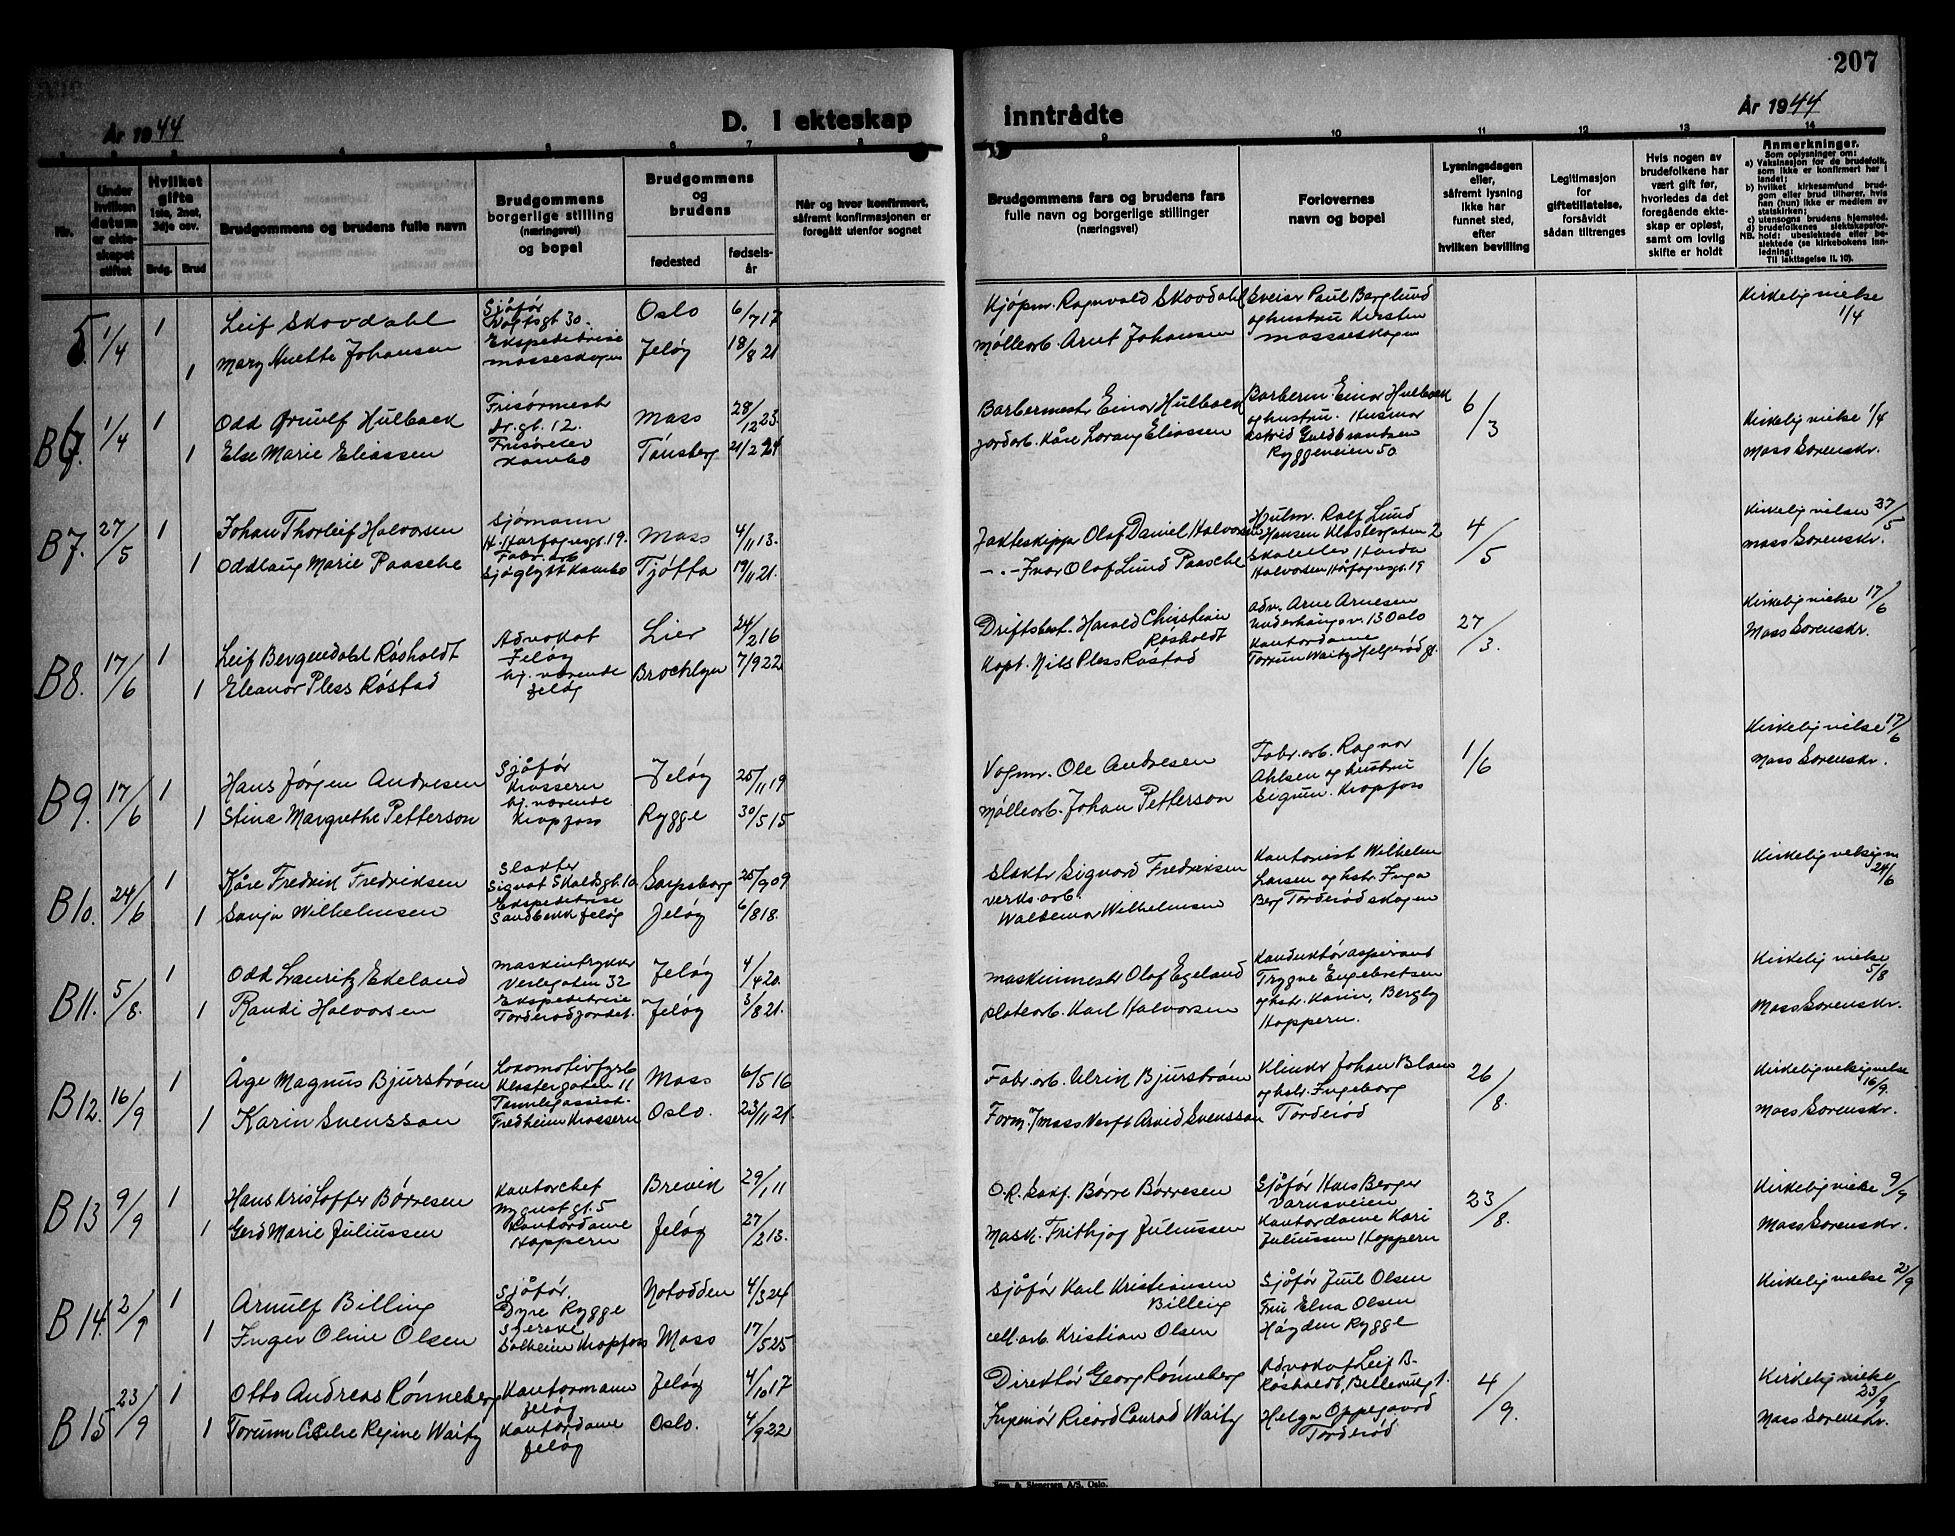 207
År 1944
D. I ekteskap inntrådte
År 1944
1 2 3 4 5 6 7 8 9 10 11 12 13 14
Nr.
Under hvilken datum er ekteskapet stiftet
Hvilket gifte 1ste, 2net, 3dje osv.
Brdg. Brud
Brudgommens og brudens fulle navn
Brudgommens borgerlige stilling (næringsvei) og bopel
Brudgommens og brudens
fødested
fødselsår
Når og hvor konfirmert, såfremt konfirmasjonen er foregått utenfor sognet
Brudgommens fars og brudens fars fulle navn og borgerlige stillinger (næringsvei)
Forlovernes navn og bopel
Lysningsdagen eller, såfremt lysning ikke har funnet sted, efter hvilken bevilling
Legitimasjon for giftetillatelse, forsåvidt sådan tiltrenges
Hvis nogen av brudefolkene har vært gift før, hvorledes da det foregående ekteskap er opløst, samt om lovlig skifte er holdt
Anmerkninger.
Som oplysninger om:
a) Vaksinasjon for de brudefolk, som ikke er konfirmert her i landet;
b) hvilket kirkesamfund brudgom eller brud tilhører, hvis han (hun) ikke er medlem av statskirken;
c) utensogns brudens hjemsted.
d) brudefolkenes slektskapsforhold: ubeslektede eller beslektede (se kirkebokens innledning;
NB. Til iakttagelse II. 10).
5. 1/4 1 Leif Skovdahl Sjåfør Vogtsgt 30. Oslo 6/7 17 Kjøpm. Ragnvald Skovdahl Sveiser Paul Berglund og hustru Kirsten Mosseskogen Kirkelig vielse 1/4
1 Mary Anette Johansen Ekspeditrise Mosseskogen Jeløy 18/8 21 Møllearb. Arnt Johansen
B6. 1/4 1 Odd Ørnulf Hulbaek Frisørmestr Dr.gt. 12. Moss 28/12 23. Barbermestr Einar Hulbaek Barberm. Einar Hulbaek og hustru. 6/3 Kirkelig vielse 1/4
1 Else Marie Eliassen Kambo Tønsberg 21/2 24 Jordarb. Kåre Lorang Eliassen Astrid Guldbrandsen Ryggeveien 50 Moss Sorenskr.
B7. 27/5 1 Johan Thorleif Halvorsen Sjømann H. Harfagresgt. 19. Moss 4/11 13. Jakteskipp. Olaf Daniel Halvorsen Hjulm. Rolf Lund Hansen Klostergaten 2 4/5 Kirkelig vielse 27/5
1 Oddlaug Marie Paasche Fabr. arb Sjøglytt Kambo Tjøtta 19/11 21. -.- Ivar Olaf Lund Paasche Halvorsen Hårfagresgt. 19 Moss Sorenskr.
B8. 17/6 1 Leif Bergendahl Røsholdt Advokat Jeløy Lier 24/2 16 Driftsbest. Harald Christian Røsholdt Adv. Arne Arnesen Underhaugsv. 13 Oslo 27/3. Kirkelig vielse 17/6
1 Eleanor Pless Røstad hj. værende Jeløy Brochlyn 7/9 22 Kapt. Nils Pless Røstad Kontordame Torrun Waitz Helgerødgt. Moss Sorenskr.
B9. 17/6 1 Hans Jørgen Andresen Sjåfør Krossern Jeløy 25/11 19 Vognm. Ole Andresen Fabr. arb. Ragnar Ahlsen og hustru 1/6 Kirkelig vielse 17/6
1 Stina Margrethe Petterson hj. værende Kropfoss Rygge 30/5 15 Møllearb. Johan Petterson Sigrun. Kropfoss Moss Sorenskr.
B10. 24/6 1 Kåre Fredrik Fredriksen Slakter Sigvat Skaldsgt. 10 Sarpsborg 25/9 09 Slaktr Sigvard Fredriksen Kontorist Wilhelm Larsen og hstr. Inga Kirkelig velsign 24/6
1 Sonja Wilhelmsen Ekspeditrise Sandbekk Jeløy Jeløy 6/8 18. Verks. arb. Waldemar Wilhelmsen Berg Torderødskogen
B11. 5/8. 1 Odd Lauritz Ekeland Maskintrykker Verlegaten 32 Jeløy 4/4 20. Maskinmestr Olaf Egeland Konduktøraspirant Trygve Engebretsen Kirkelig vielse 5/8
1 Randi Halvorsen Ekspeditrise Torderødjordet. Jeløy 3/8 21. Platearb. Karl Halvorsen og hstr. Karin, Bergby Hoppern. Moss Sorenskr.
B12. 16/9 1 Åge Magnus Bjurstrøm Lokomotivfyrb Klostergaten 11 Moss 6/5 16 Fabr. arb. Ulrik Bjurstrøm Johan Blom og hstr. Ingeborg 26/8. Kirkelig velsignelse 16/9.
1 Karin Svensson Tannlegassist. Fredheim Krossern Oslo. 23/11 21. Form. / Moss Verft Arvid Svensson Torderød Moss Sorenskr.
B13 9/9 1 Hans Kristoffer Børresen Kontorchef Nygust gt. 5 Brevik 29/1 11 O.R. Sakf. Børre Børresen Sjåfør Hans Berger Varnaveien 23/8. Kirkelig vielse 9/9
1 Gerd Marie Juliussen Kontordame Hoppern Jeløy 27/2 13. Mask. Frithjog Juliussen Kontordame Kari Juliussen Hoppern Moss Sorenskr.
B14. 2/9 1 Arnulf Billing Sjåfør, Dyre Rygge Notodden 4/3 24 Sjåfør Karl Kristiansen Billing Sjåfør Juul Olsen Kirkelig vielse 2/9
1 Inger Oline Olsen Solheim Kropfoss Moss 17/5 25 Cell. arb. Kristian Olsen Fru Elna Olsen Høyden Rygge
B15 23/9 1 Otto Andreas Rønneberg Kontormann Jeløy Jeløy 4/10 17 Direktør Georg Rønneberg Advokat Leif B. Røsholdt, Bellevuegt. 4/9. Kirkelig vielse 23/9
1 Torunn Cecilie Regine Waitz Kontordame Jeløy Oslo. 4/9 22 Ingeniør Ricard Conrad Waitz Helga Oppegaard Torderød Moss Sorenskr.